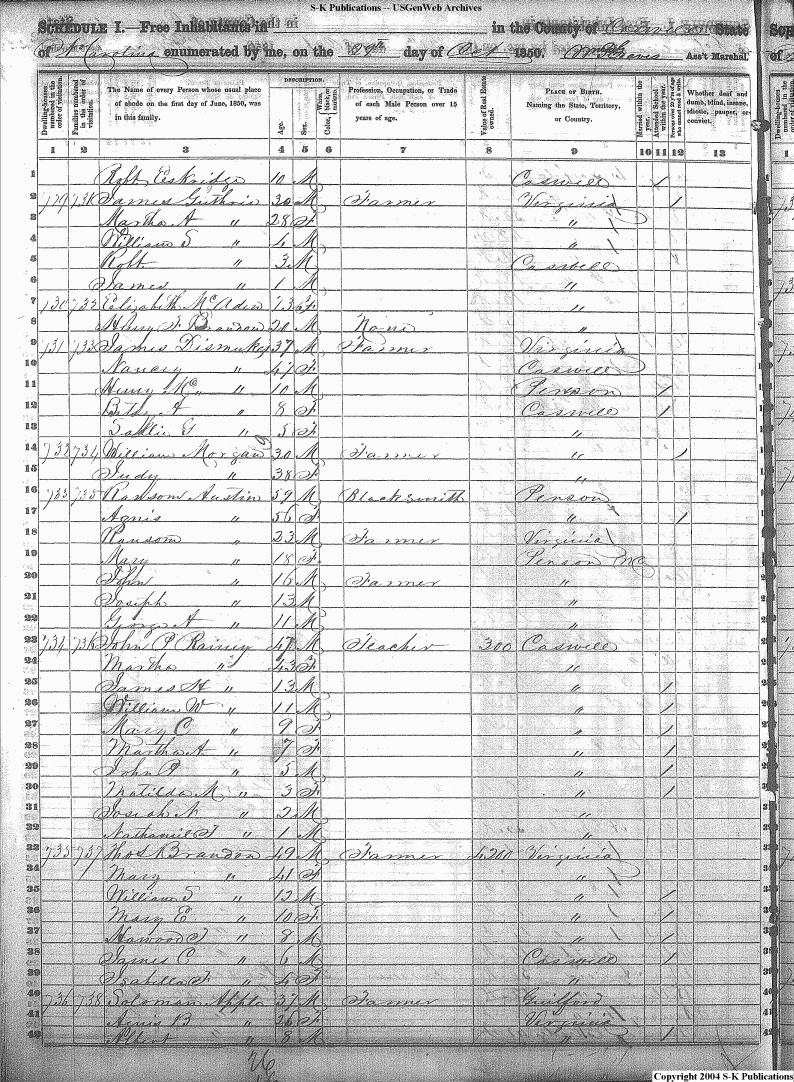 S-K Publications -- USGenWeb Archives
SCHEDULE I.—Free Inhabitants in in the County of Caswell State
of N. Carolina enumerated by me, on the 29th day of Oct 1850. Ass't Marshal.
Dwelling-houses numbered in the order of visitation. Families numbered in the order of visitation. The Name of every Person whose usual place of abode on the first day of June, 1850, was in this family. DESCRIPTION. Age. Sex. Color, White, black, or mulatto. Profession, Occupation, or Trade of each Male Person over 15 years of age. Value of Real Estate owned. PLACE OF BIRTH. Naming the State, Territory, or Country. Married within the year. Attended School within the year. Persons over 20 y'rs of age who cannot read & write. Whether deaf and dumb, blind, insane, idiotic, pauper, or convict.
1 2 3 4 5 6 7 8 9 10 11 12 13
1 Robt Eskridge 10 M Caswell /
2 729 731 James Guthrie 30 M Farmer Virginia /
3 Martha A " 28 F "
4 William S " 4 M "
5 Robt. " 3 M Caswell
6 James " 1 M "
7 730 732 Elizabeth McAden 13 F "
8 Henry F Brandon 20 M None "
9 731 733 James Dismukes 37 M Farmer Virginia
10 Nancy " 47 F Caswell
11 Henry Mc " 10 M Person /
12 Betsy A " 8 F Caswell /
13 Sallie G " 5 F "
14 732 734 William Morgan 30 M Farmer " /
15 Judy " 38 F "
16 733 735 Ransom Austin 59 M Blacksmith Person
17 Agnis " 56 F " /
18 Ransom " 23 M Farmer Virginia
19 Mary " 18 F Person NC
20 John " 16 M Farmer "
21 Joseph " 13 M "
22 George A " 11 M "
23 734 736 John P Rainey 47 M Teacher 300 Caswell
24 Martha " 43 F "
25 James H " 13 M " /
26 William W " 11 M " /
27 Mary C " 9 F " /
28 Martha A " 7 F " /
29 John P " 5 M " /
30 Matilda M " 3 F " /
31 Josiah N " 2 M "
32 Nathaniel T " 1 M "
33 735 737 Thos Brandon 49 M Farmer 4200 Virginia
34 Mary " 41 F "
35 William S " 12 M " /
36 Mary E " 10 F " /
37 Hawood T " 8 M " /
38 James C " 6 M Caswell /
39 Isabella F " 4 F "
40 736 738 Soloman Apple 37 M Farmer Guilford
41 Agnis B " 26 F Virginia
42 Albert " 8 M " /
Copyright 2004 S-K Publications